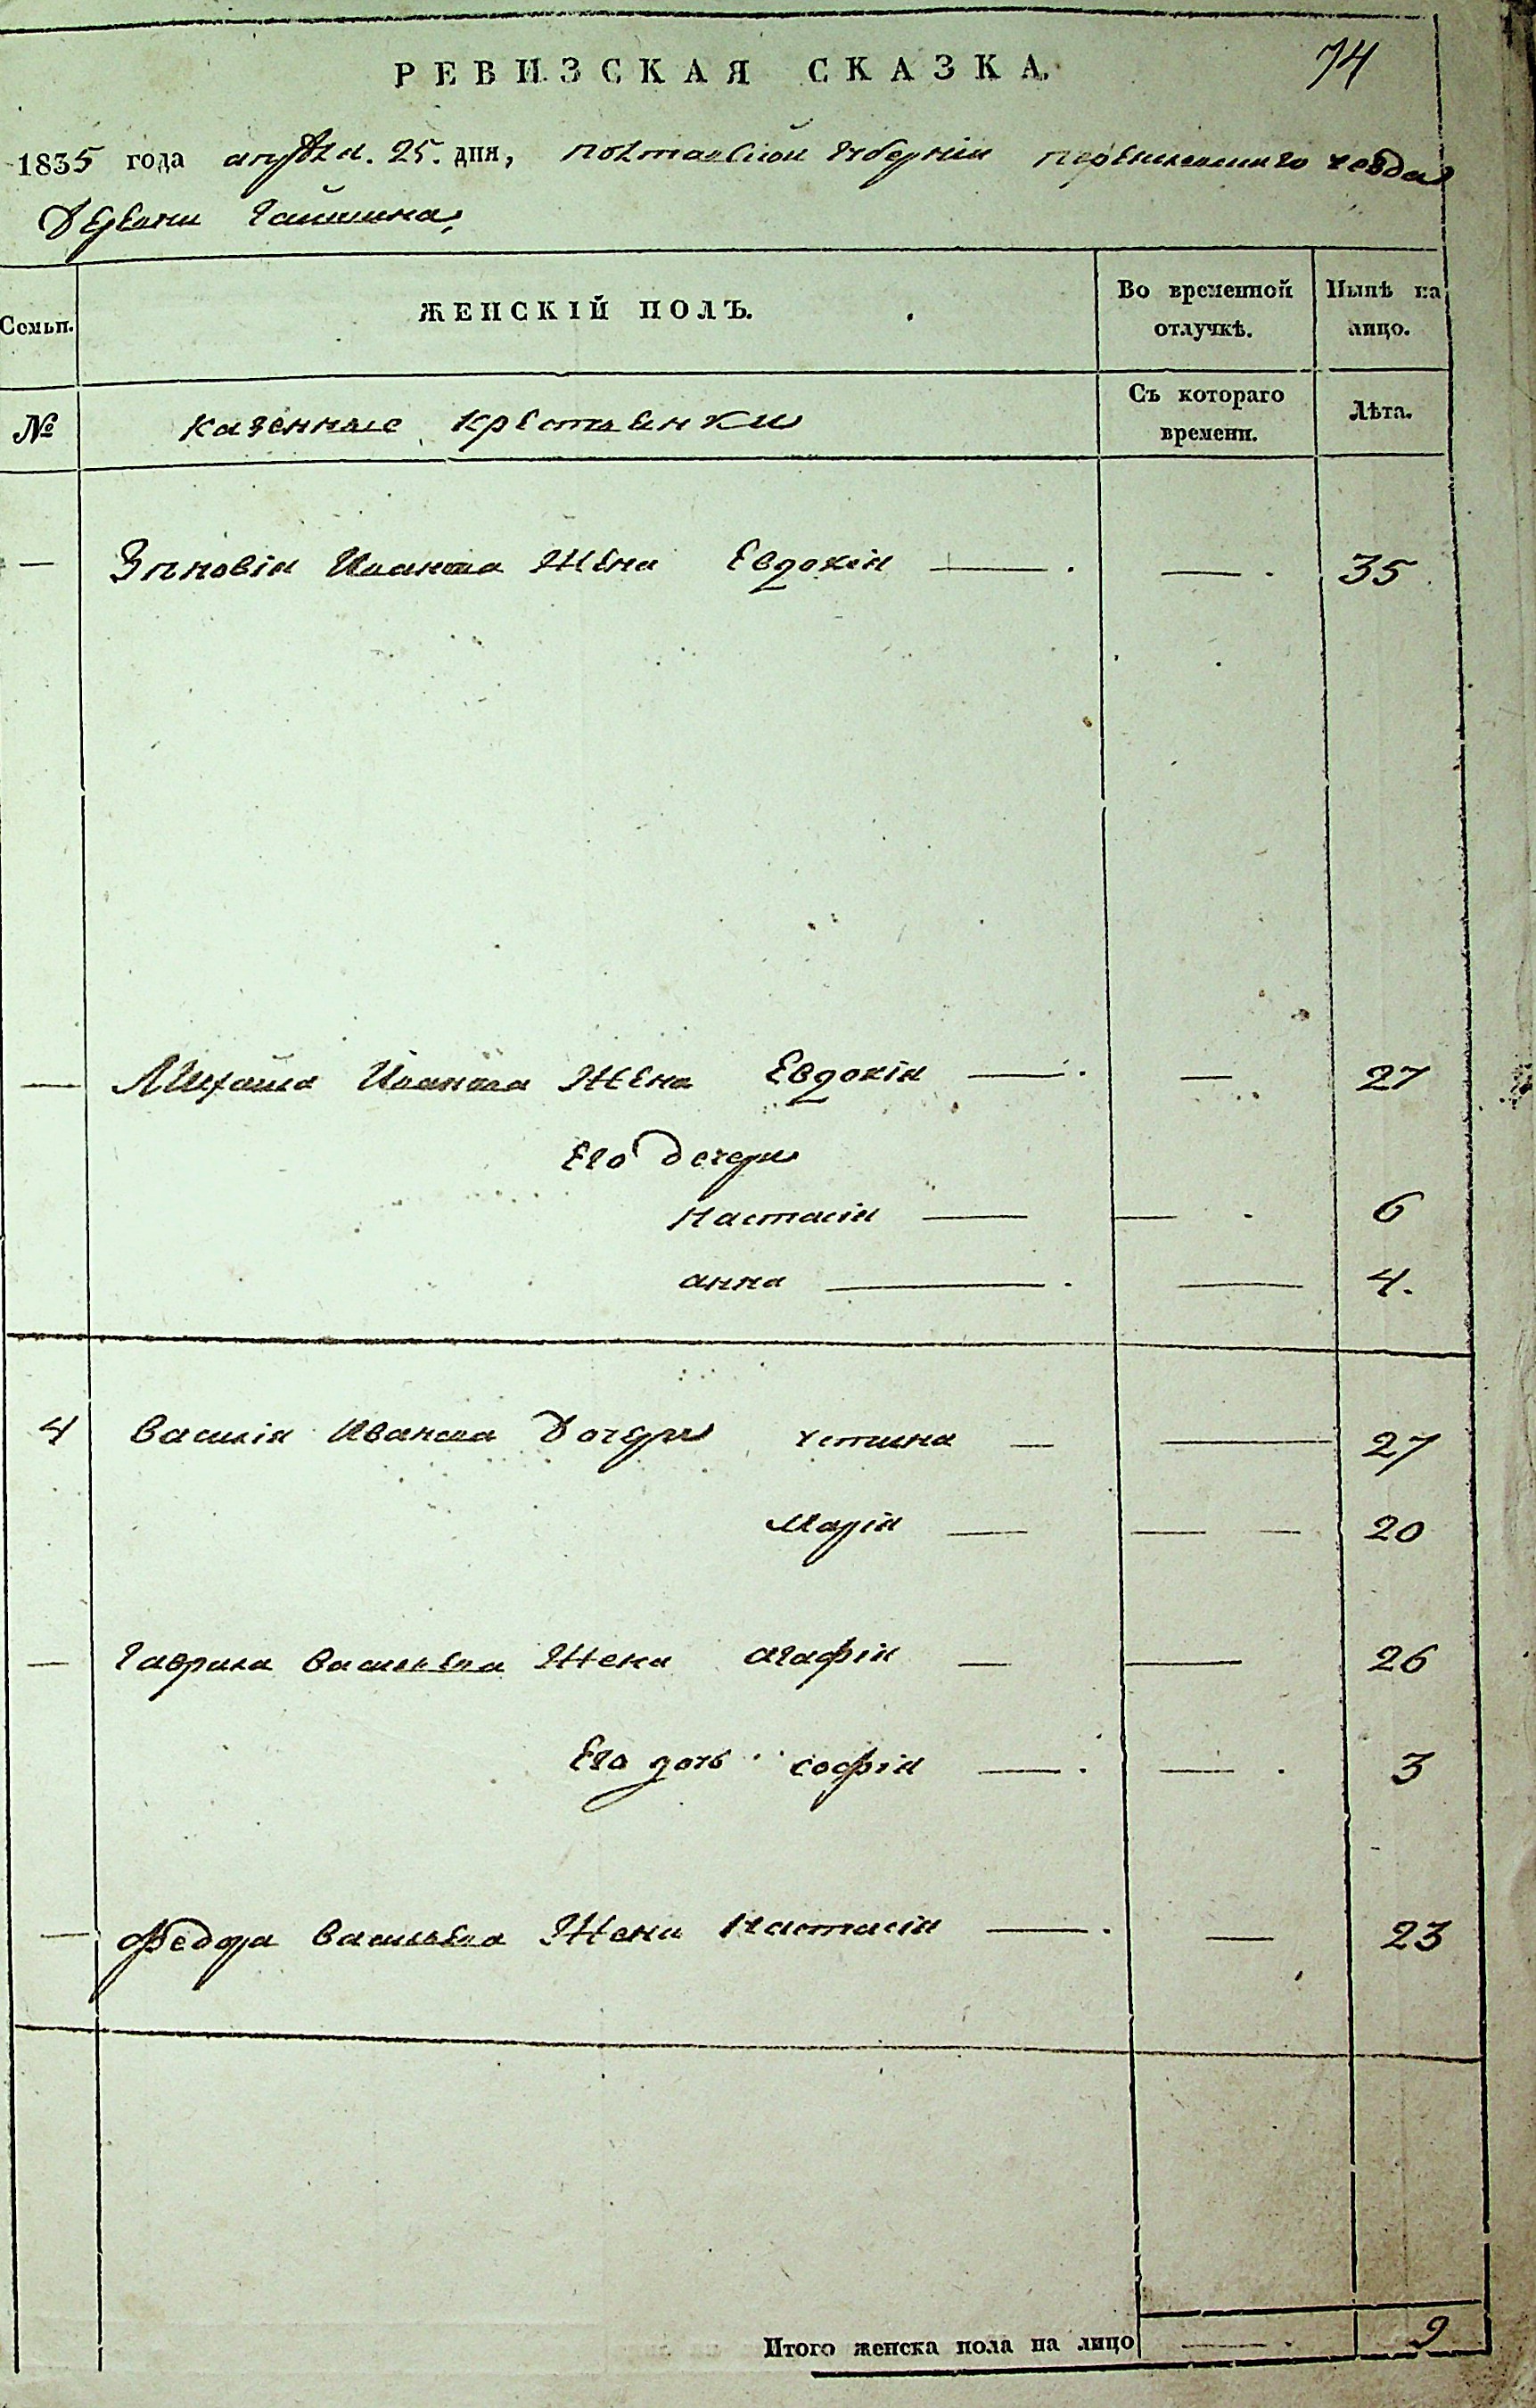 74
РЕВИЗСКАЯ СКАЗКА.
1835 года апреля. 25. дня, полтавской губернiи переяславского уезда
Деревни Гайшина,
Семьи. ЖЕНСКІЙ ПОЛЪ. Во временной отлучкѣ. Нынѣ на лицо.
№ казенные крестьянки Съ котораго времени. Лѣта.
— Зѣновiя Иванова жена Евдокiя — . — . 35
— Михайла Иванова жена Евдокiя — . — 27
Его дочери
Настасiя — — . 6
анна — . — 4.
4 Василiя Иванова Дочери устина — — 27
Марiя — — — 20
— Гаврила Васильева Жена агафiя — — 26
Его дочь софiя — . — . 3
— Федора Васильева Жена Настасiя — . — 23
Итого женска пола на лицо — . 9